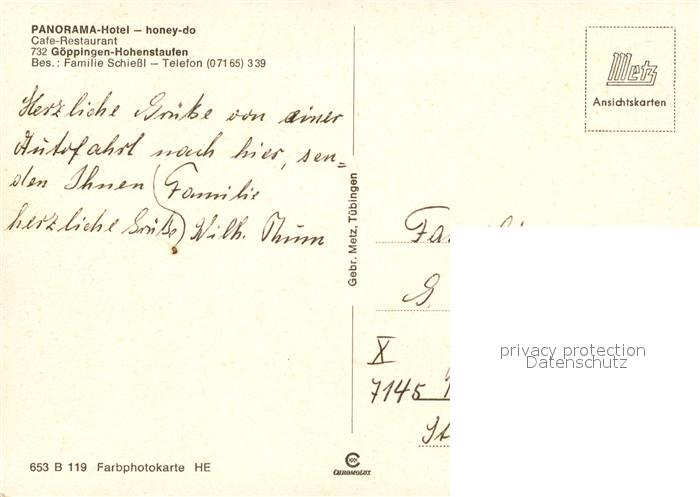 PANORAMA-Hotel – honey-do
Cafe-Restaurant
732 Göppingen-Hohenstaufen
Bes.: Familie Schießl – Telefon (07165) 339
Metz
Ansichtskarten
Herzliche Grüße von einer
Autofahrt nach hier, sen=
den Ihnen (Familie
herzliche Grüße) Wilh. Thum
Gebr. Metz, Tübingen
Fa
G.
X
7145
St
privacy protection
Datenschutz
653 B 119 Farbphotokarte HE
CHROMOLUX